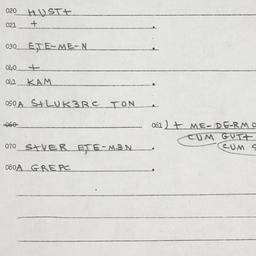 020 HUST+
021 +
030 ETE-ME-N
040 +
041 KAM
050A S+LUK3RC TON
060
061) + ME-DE-RMO
CUM GUT+
CUM S
070 S+VER ETE-M3N
080A GREPC